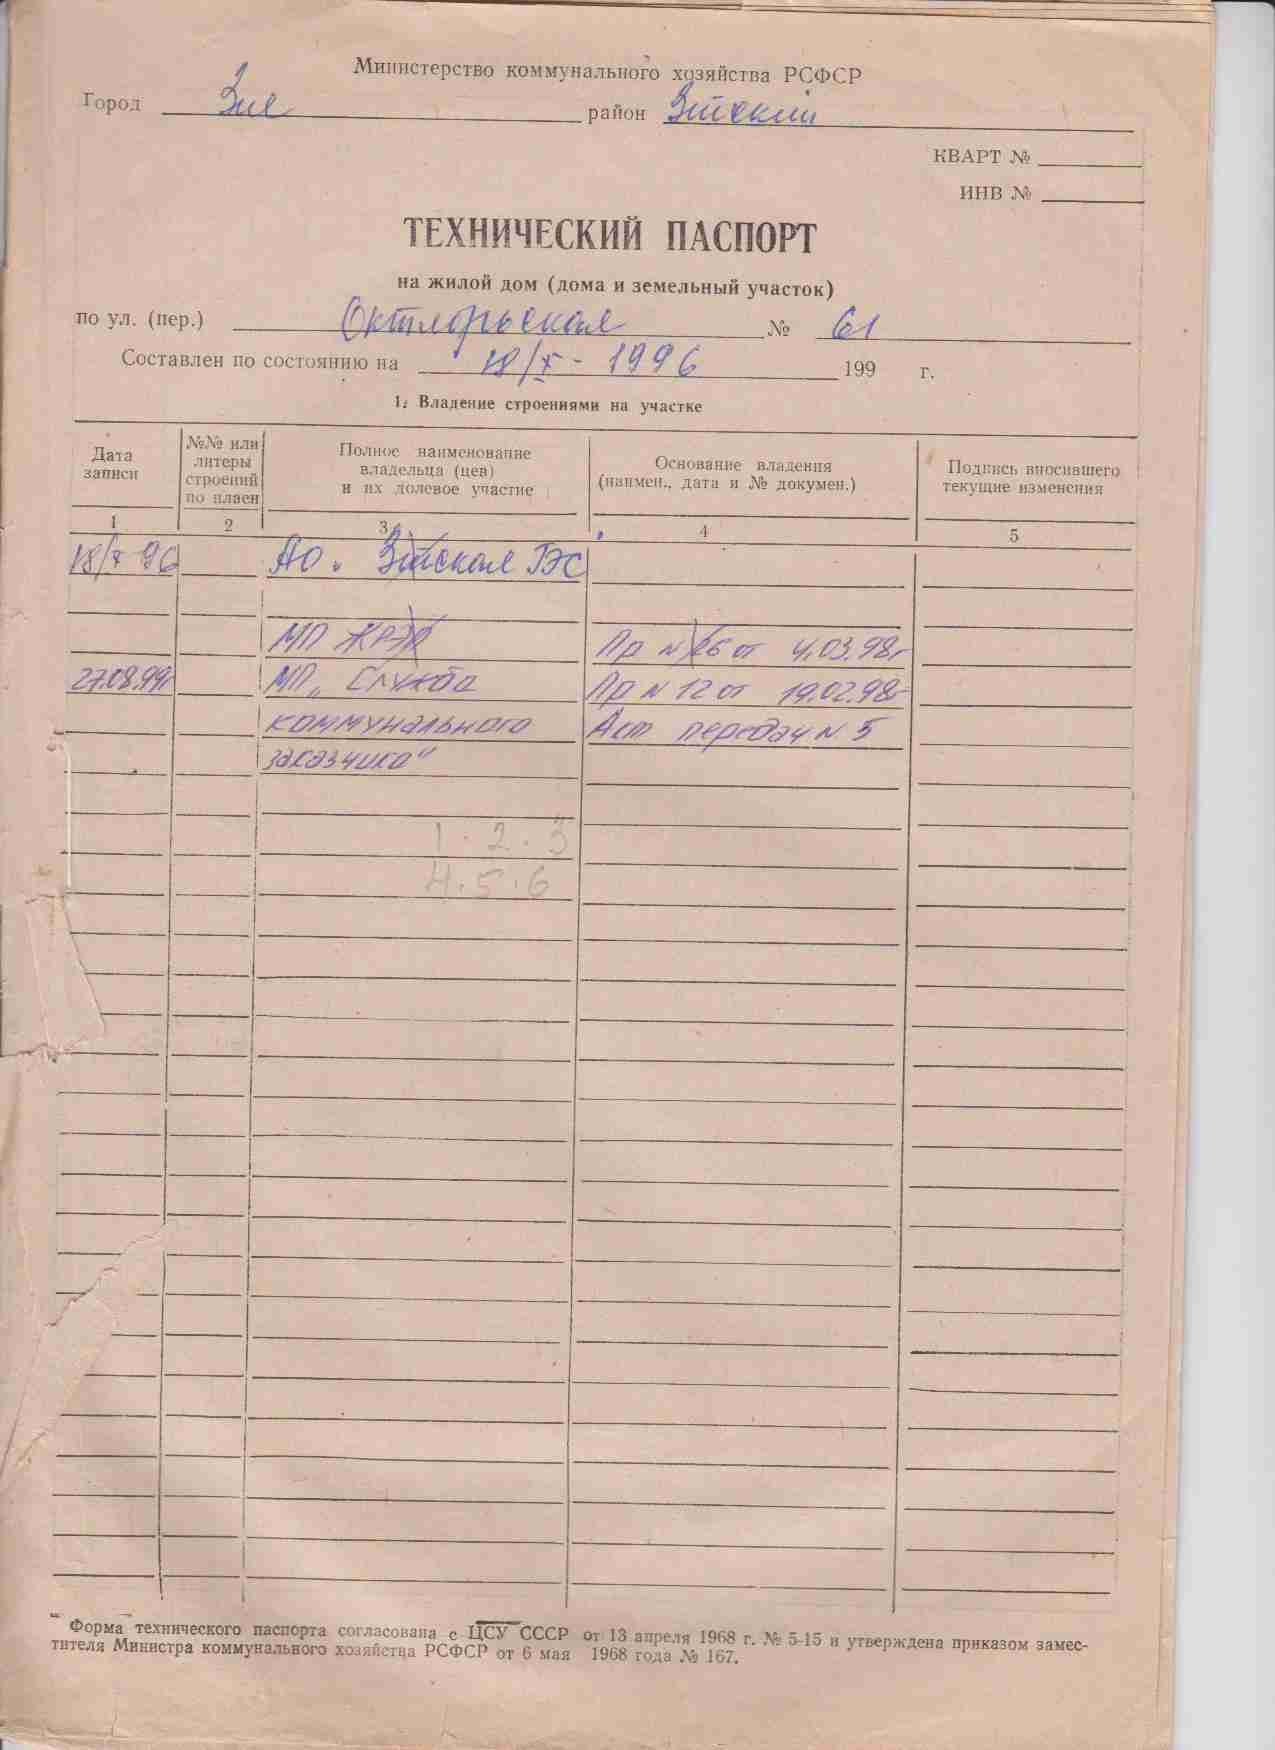 Министерство коммунального хозяйства РСФСР
Город Зея район Зейский
КВАРТ №
ИНВ №
ТЕХНИЧЕСКИЙ ПАСПОРТ
на жилой дом (дома и земельный участок)
по ул. (пер.) Октябрьская № 61
Составлен по состоянию на 18/X - 1996 199 г.
1. Владение строениями на участке
Дата записи
№№ или литеры строений по плаен
Полное наименование владельца (цев) и их долевое участие
Основание владения (наимен., дата и № докумен.)
Подпись вносившего текущие изменения
1 2 3 4 5
18/X 96 АО „ Зейская ГЭС
МП ЖРЭП Пр N 26 от 4.03.98г
27.08.99г МП „ Служба Пр N 12 от 19.02.98г
коммунального Акт передач N 5
заказчика"
1 . 2 . 3
4 . 5 . 6
Форма технического паспорта согласована с ЦСУ СССР от 13 апреля 1968 г. № 5-15 и утверждена приказом замес-
тителя Министра коммунального хозяйства РСФСР от 6 мая 1968 года № 167.